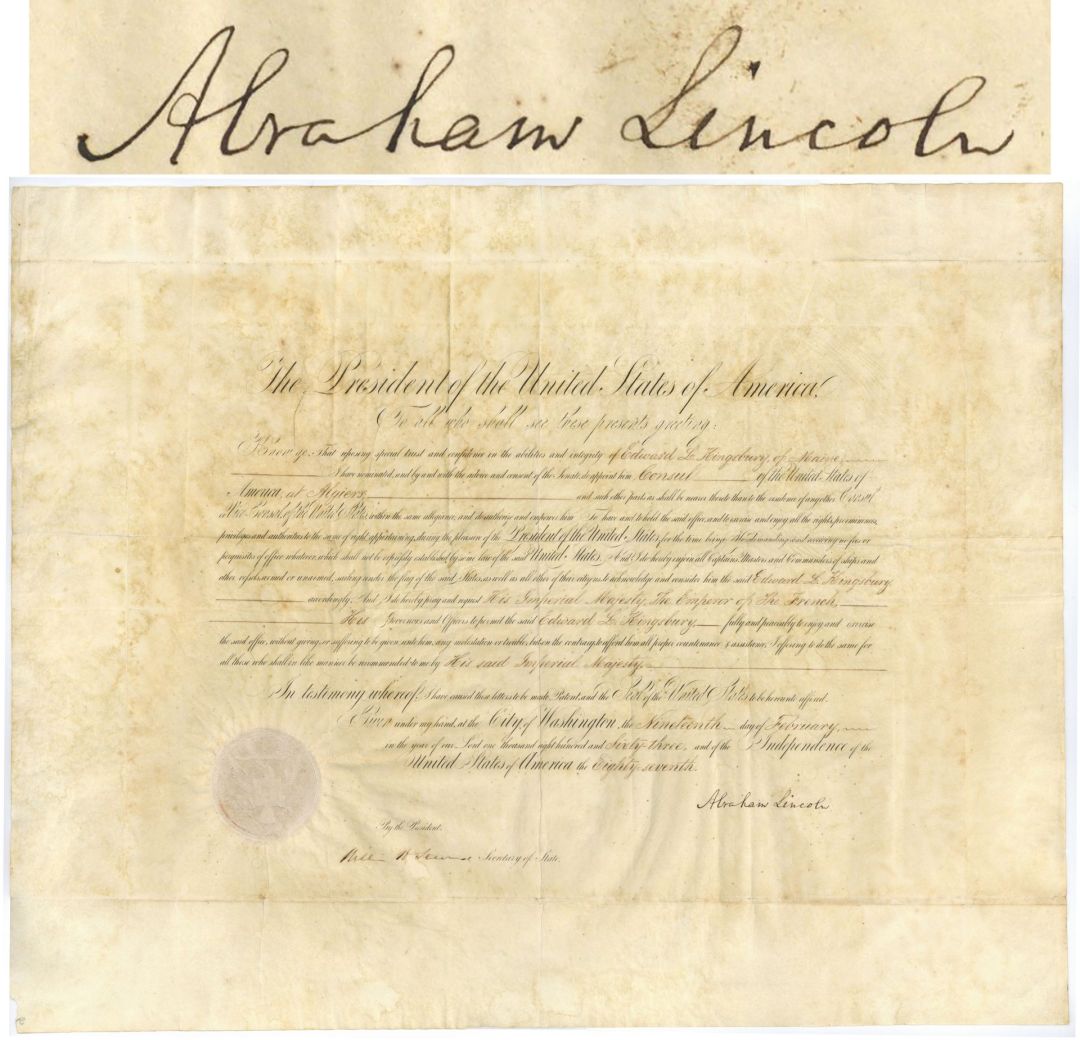 Abraham Lincoln
The President of the United States of America,
To all who shall see these presents greeting:
Know ye, That reposing special trust and confidence in the abilities and integrity of Edward L. Kingsbury, of Maine,
I have nominated, and by and with the advice and consent of the Senate, do appoint him Consul of the United States of
America, at Algiers, and such other parts as shall be nearer thereto than to the residence of any other Consul
or Vice Consul of the United States, within the same allegiance; and do authorize and empower him To have and to hold the said office, and to exercise and enjoy all the rights, preeminences,
privileges and authorities to the same of right appertaining, during the pleasure of the President of the United States for the time being: He demanding and receiving no fees or
perquisites of office whatever, which shall not be expressly established by some law of the said United States. And I do hereby enjoin all Captains, Masters and Commanders of ships and
other vessels, armed or unarmed, sailing under the flag of the said States, as well as all other of their citizens, to acknowledge and consider him the said Edward L. Kingsbury
accordingly. And I do hereby pray and request His Imperial Majesty, The Emperor of The French,
His Governors and Officers to permit the said Edward L. Kingsbury fully and peaceably to enjoy and exercise
the said office, without giving, or suffering to be given unto him, any molestation or trouble, but on the contrary to afford him all proper countenance & assistance; I offering to do the same for
all those who shall in like manner be recommended to me by His said Imperial Majesty.
In testimony whereof, I have caused these letters to be made Patent, and the Seal of the United States to be hereunto affixed.
Given under my hand, at the City of Washington, the Nineteenth day of February,
in the year of our Lord one thousand eight hundred and Sixty-three, and of the Independence of the
United States of America, the Eighty-seventh.
Abraham Lincoln
By the President.
William H. Seward Secretary of State.